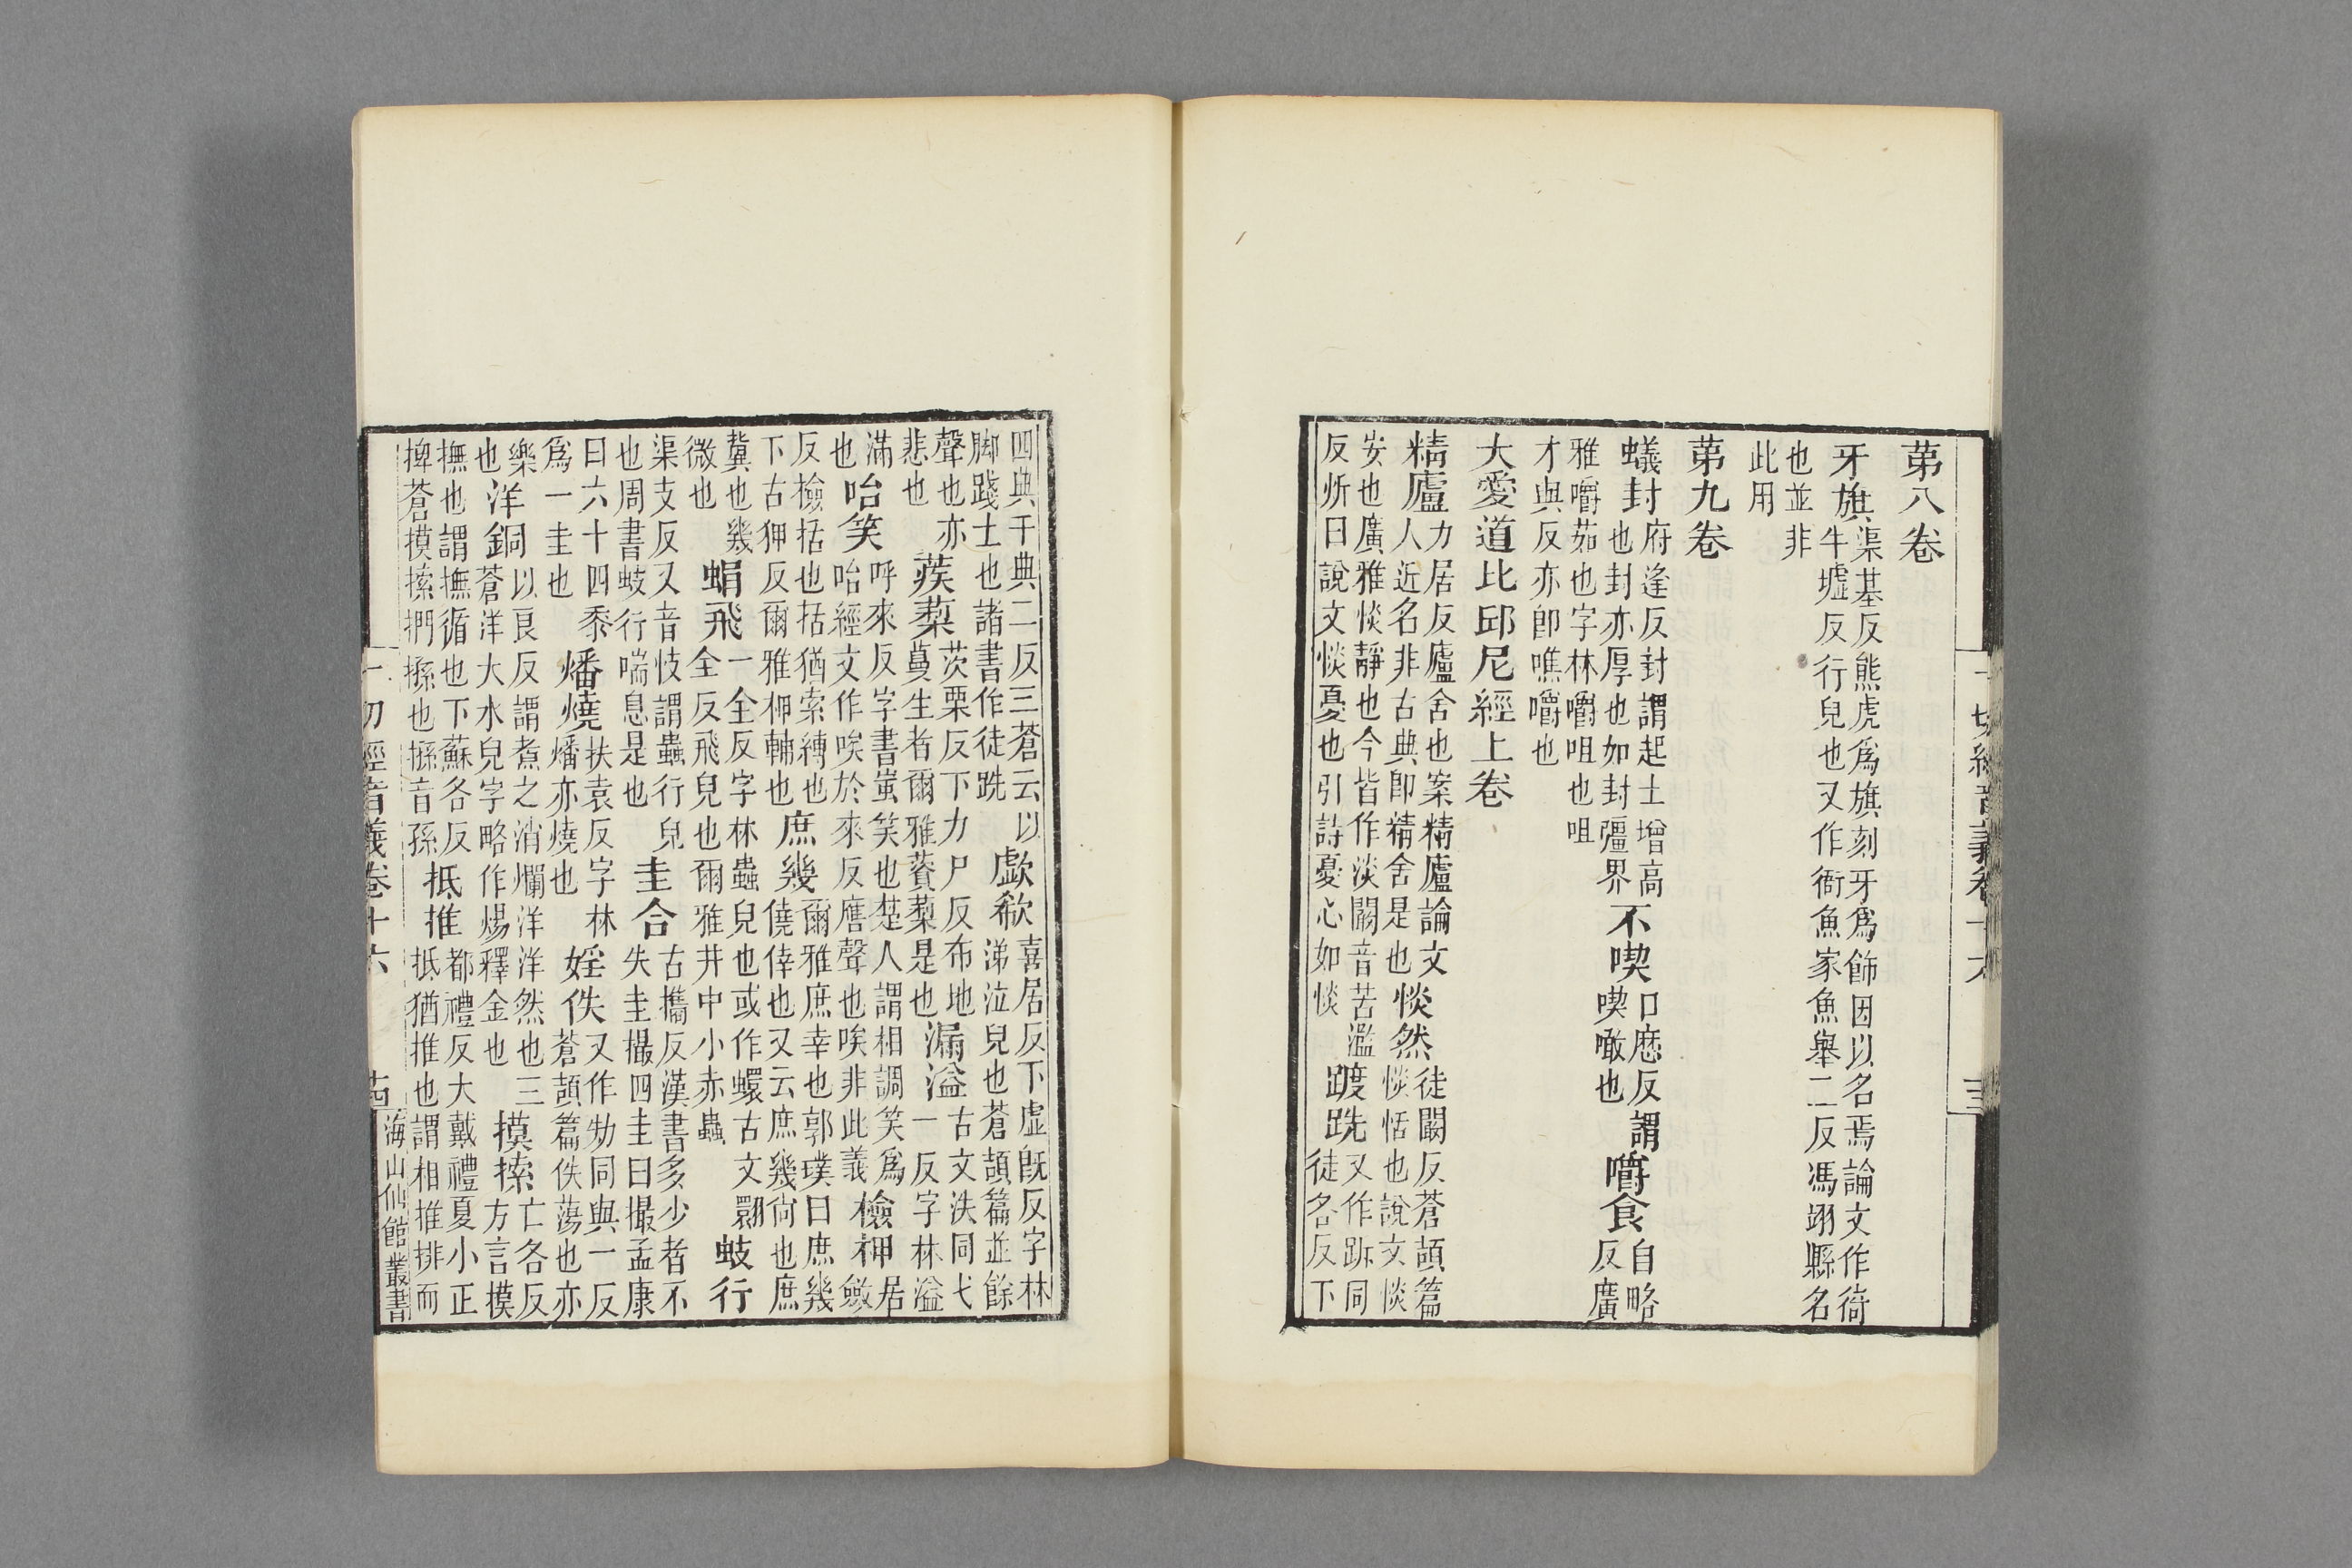 苐八卷
牙旗渠基反熊虎爲旗刻牙爲飾因以名焉論文作䘕
牛墟反行皃也又作衙魚家魚舉二反馮翊縣名
也並非
此用
苐九卷
蟻封府逢反封謂起土增高
也封亦厚也如封彊界
不喫口㦄反謂
喫噉也
嚼食自略
反廣
雅嚼茹也字林嚼咀也咀
才與反亦卽噍嚼也
大愛道比邱尼經上卷
精廬力居反廬舍也案精廬論文
人近名非古典卽精舍是也
惔然徒闞反蒼頡篇
惔恬也說文惔
安也廣雅惔靜也今皆作淡闞音苦濫
反炘曰說文惔憂也引詩憂心如惔
踱跣又作跡同
徒各反下
四典千典二反三蒼云以
脚踐土也諸書作徒跣
歔欷喜居反下虛旣反字林
涕泣皃也蒼頡篇並餘
聲也亦
悲也
蒺䔧茨栗反下力尸反布地
蔓生者爾雅薋䔧是也
漏溢古文泆同弋
一反字林溢
滿
也
咍笑呼來反字書蚩笑也楚人謂相調笑爲
咍經文作唉於來反麿聲也唉非此義
檢柙居
斂
反檢括也括猶索縛也
下古狎反爾雅柙輔也
庶幾爾雅庶幸也郭璞曰庶幾
僥倖也又云庶幾尙也庶
冀也幾
微也
蜎飛一全反字林蟲皃也或作蠉古文翾
全反飛皃也爾雅井中小赤蟲
蚑行
渠支反又音忮謂蟲行皃
也周書蚑行喘息是也
圭合古攜反漢書多少者不
失圭撮四圭曰撮孟康
曰六十四黍
爲一圭也
燔燒扶袁反字林
燔亦燒也
婬佚又作劮同與一反
蒼頡篇佚蕩也亦
樂
也
洋銅以良反謂煑之消爛洋洋然也三
蒼洋大水皃字略作煬釋金也
摸捺亡各反
方言摸
撫也謂撫循也下蘇各反
捭蒼摸捺捫搎也搎音孫
抵推都禮反大戴禮夏小正
抵猶推也謂相推排而
一切經音義卷十六
十四
海山仙館叢書